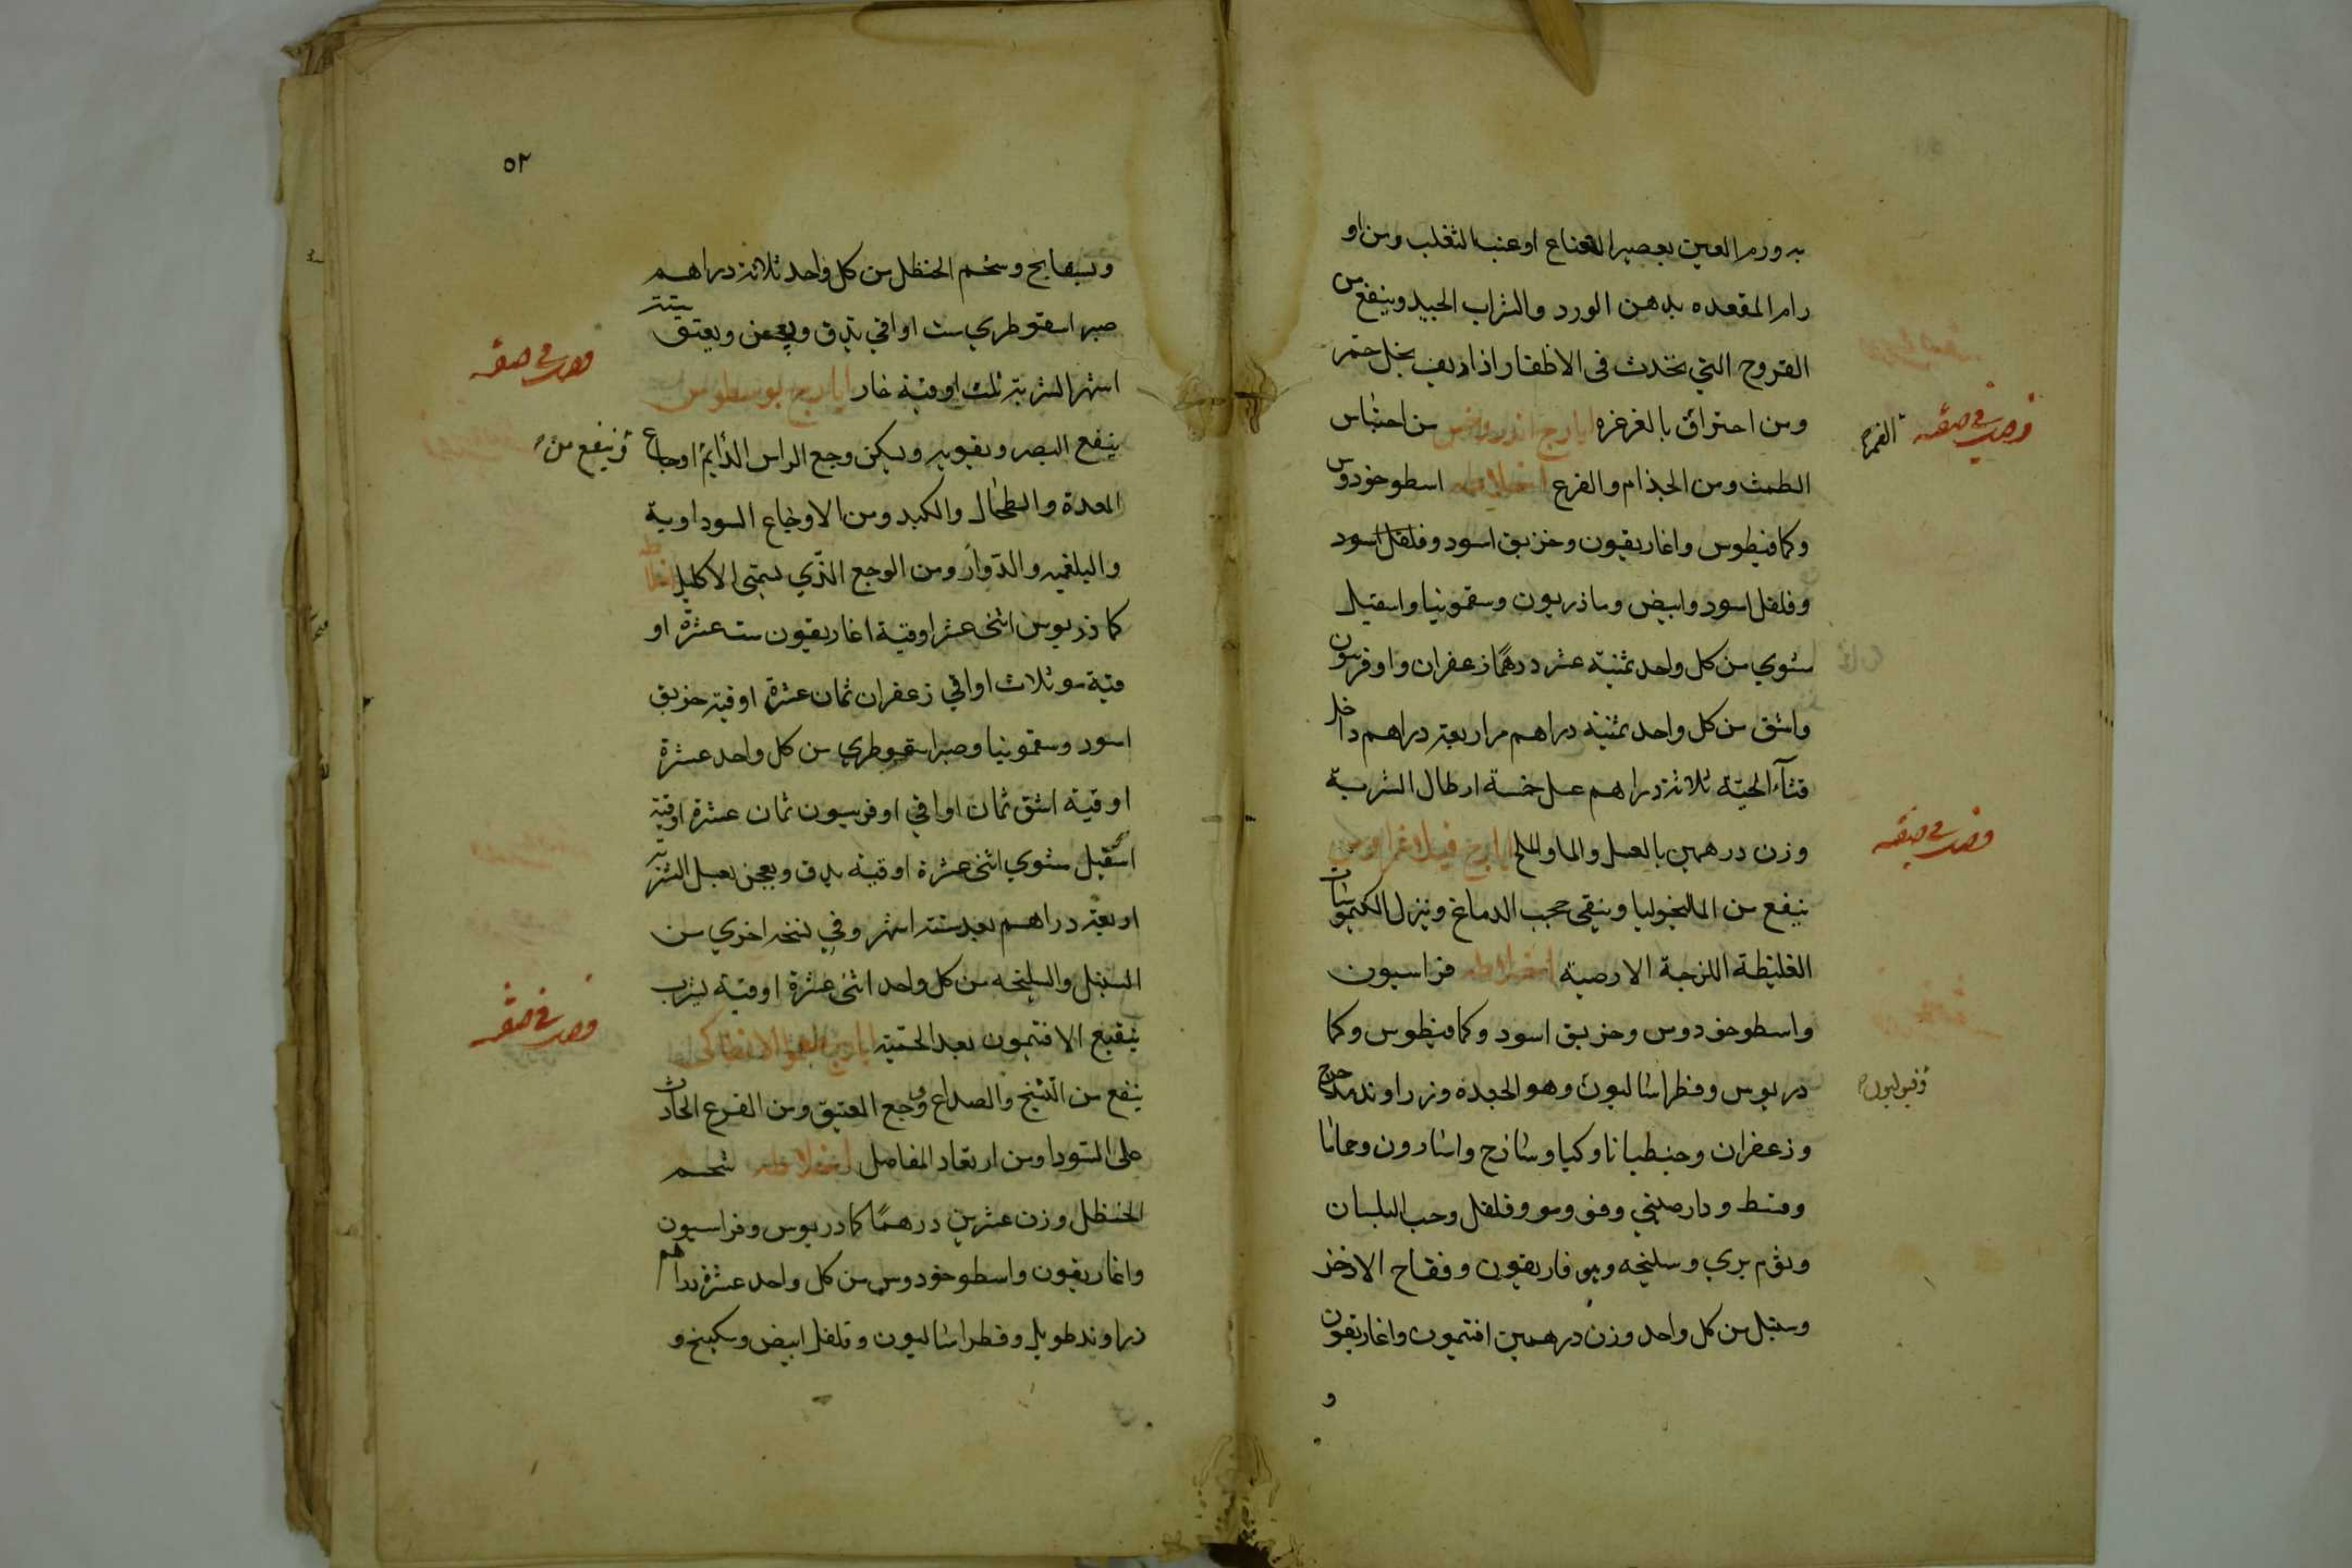 به ورم العين بعصير النعناع او عنب الثعلب ومن او
رام المقعده بدهن الورد والشراب الجيد وينفع من
القروح التي تحدث في الاظفار اذا اديف بخل خمر
ومن احتراق بالغرغره ايارج اندروخس من احتباس
الطمث ومن الجذام والقرع اخلاطه اسطوخودوس
وكمافيطوس واغاريقون وخزبق اسود وفلفل اسود
وفلفل اسود وابيض وماذريون وسقمونيا واسقيل
مشوي من كل واحد ثمنية عشر درهمًا زعفران واوفربيون
واشق من كل واحد ثمنية دراهم مر اربعة دراهم داخل
قثآء الحية ثلاثة دراهم عسل خمسة ارطال الشربة
وزن درهمين بالعسل والما والملح ايارج
ينفع من الماليخوليا وينقي حجب الدماغ وينزل الكيموسات
الغليظة اللزجة الارضية اخلاطه فراسيون
واسطوخودوس وخزبق اسود وكمافيطوس وكما
دريوس وفطراساليون وهو الجعده وزراوند مدحرج
وزعفران وجنطيانا وكيا وساذج واسارون وحماما
وقسط ودارصيني وفو ومو وفلفل وحب البلسان
وثوم بري وسليخه وهيوفاريقون وفقاح الاذخر
وسنبل من كل واحد وزن درهمين افتيمون واغاريقون
و
٥٢
وبسفايج وشحم الحنظل من كل واحد ثلاثة دراهم
صبر اسقوطري ست اواقي يدق ويعجن ويعتق ستة
اشهر الشربة ثلث اوقية غار ايارج بوسطوس
ينفع البصر ويقويه ويسكن وجع الراس الدايم اوجاع
المعدة والطحال والكبد ومن الاوجاع السوداوية
والبلغميه والدوار ومن الوجع الذي يسمى الاكليل اخلاطه
كماذريوس اثني عشر اوقية اغاريقون ست عشرة او
قية مو ثلاث اواقي زعفران ثمان عشرة اوقية خزبق
اسود وسقمونيا وصبر اسقوطري من كل واحد عشرة
اوقية اشق ثمان اواقي اوفربيون ثمان عشرة اوقية
اسقيل مشوي اثني عشرة اوقية يدق ويعجن بعسل الشربة
اربعة دراهم بعد ستة اشهر وفي نسخه اخري من
السنبل والسليخه من كل واحد اثني عشرة اوقية يشرب
بنقيع الافتيمون بعد الحمية ايارج الانطاكي
ينفع من التشنج والصداع ووجع العتيق ومن القرع الحادث
على السودا ومن ارتعاد المفاصل اخلاطه شحم
الحنظل وزن عشرين درهمًا كمادريوس وفراسيون
واغاريقون واسطوخودوس من كل واحد عشرة دراهم
زراوند طويل وفطراساليون وفلفل ابيض وسكبينج و